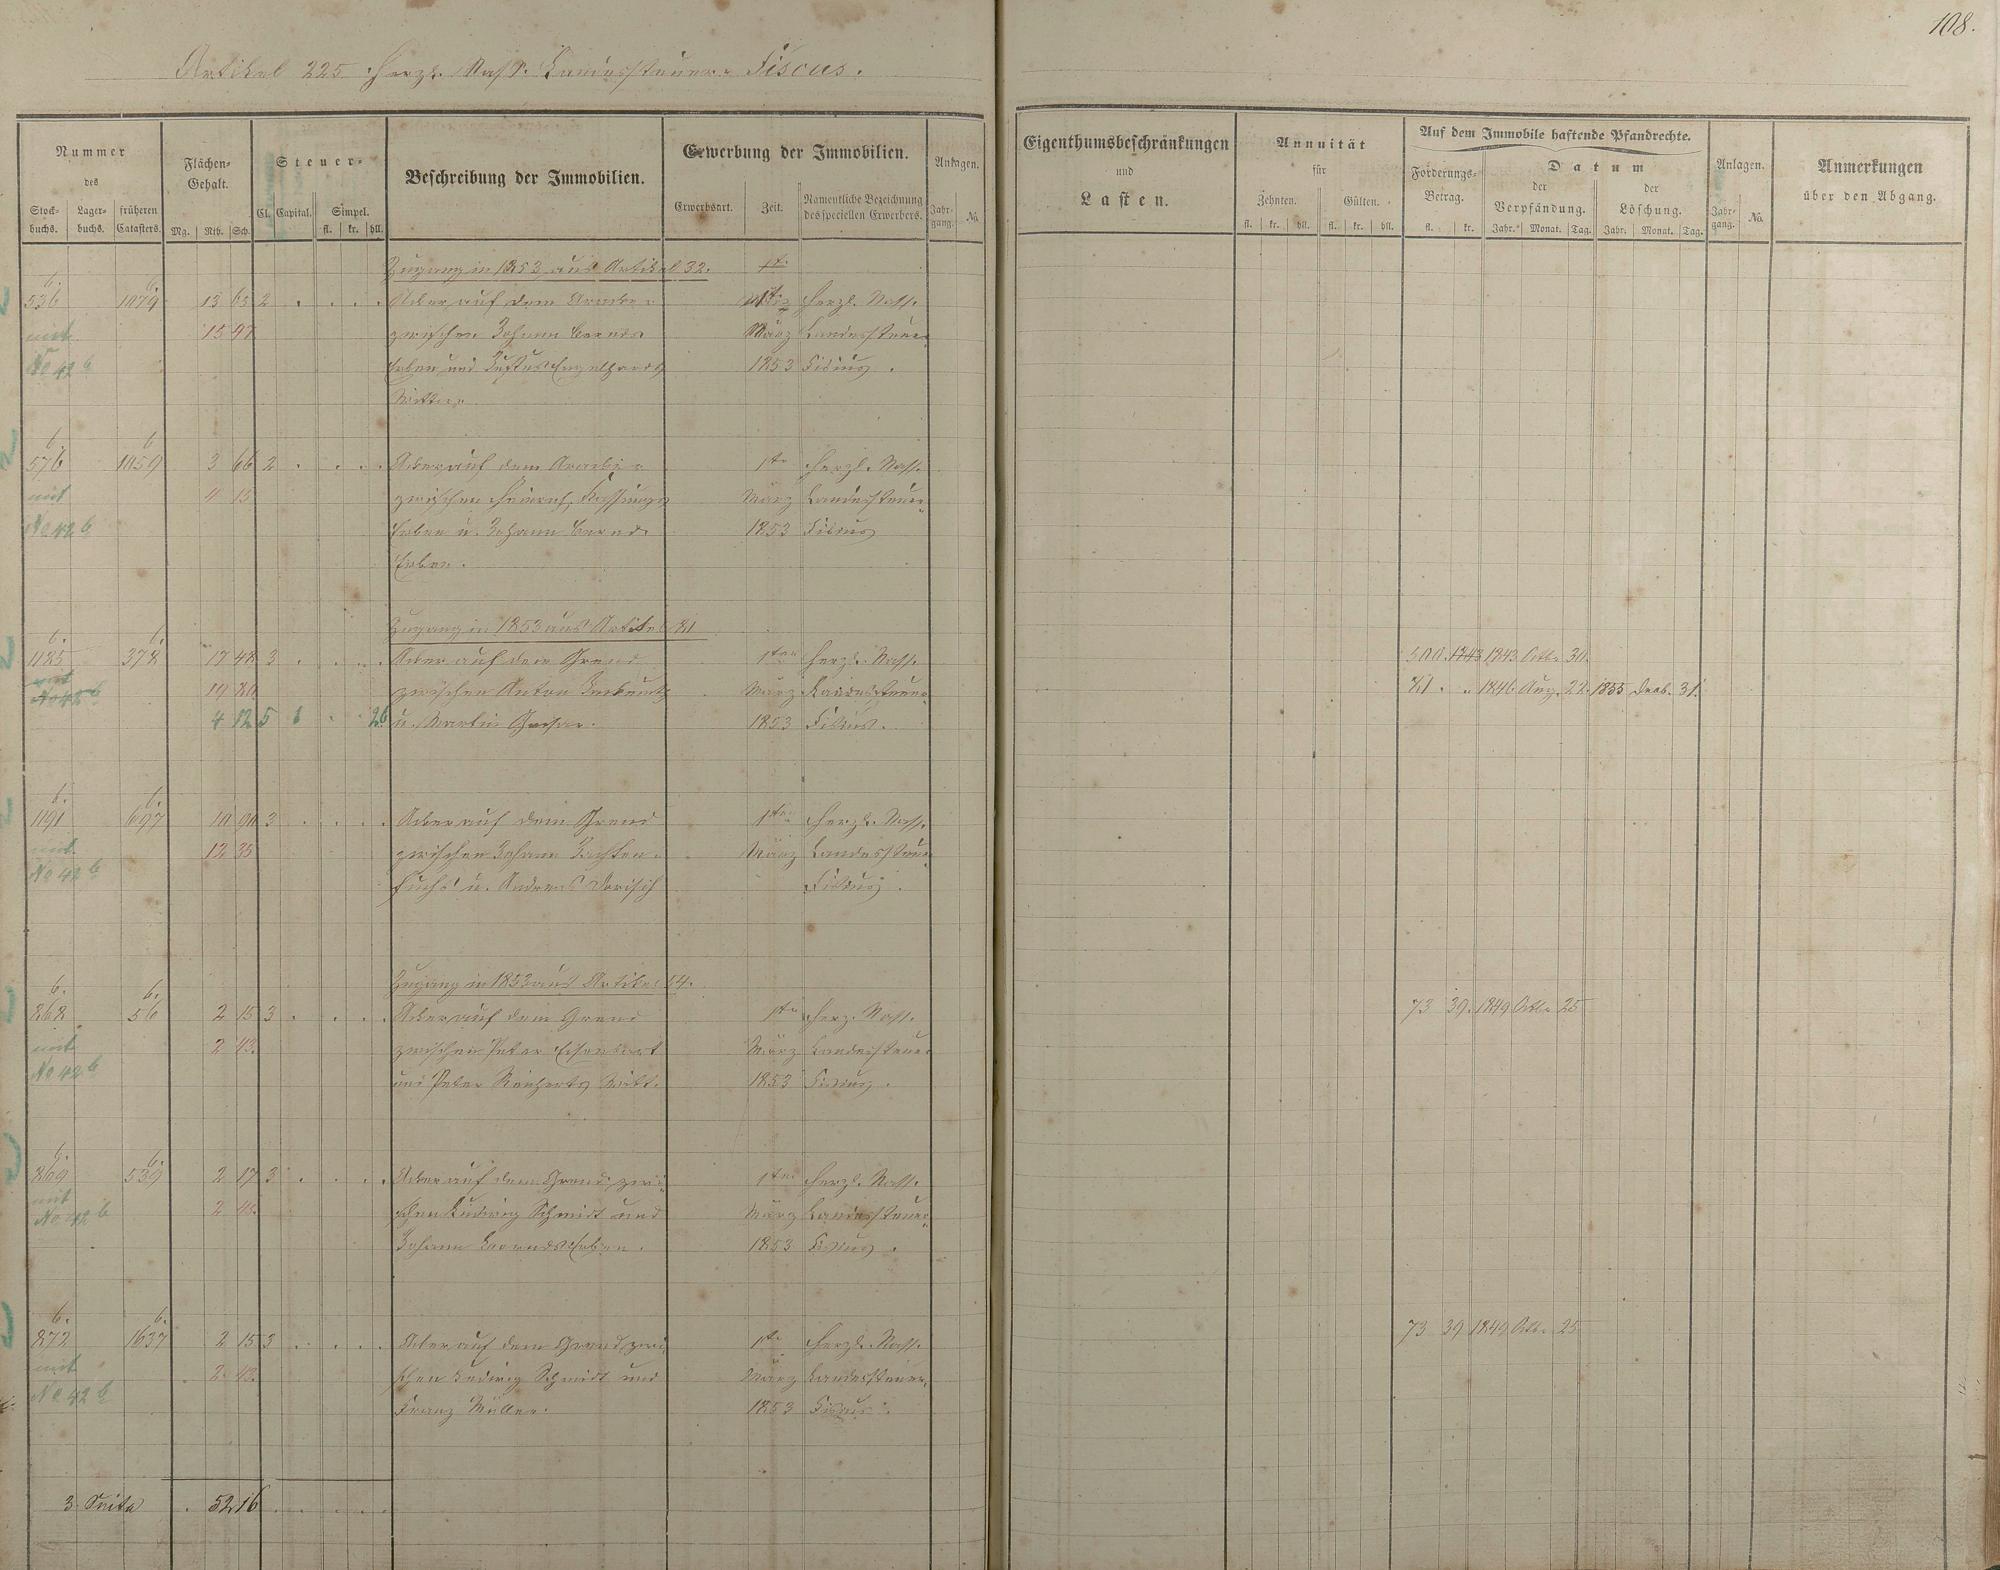 108.
Artikel 225 Herzl. Nass. Landessteuer-Fiscus.
Nummer des
Stockbuchs. Lagerbuchs. früheren Catasters.
Flächen-Gehalt.
Mg. Rth. Sch.
Steuer-
Cl. Capital. Simpel.
fl. kr. hll.
Beschreibung der Immobilien.
Erwerbung der Immobilien.
Erwerbsart. Zeit. Namentliche Bezeichnung des speciellen Erwerbers.
Anlagen.
Jahrgang. No.
Eigenthumsbeschränkungen und Lasten.
Annuität für
Zehnten. Gülten.
fl. kr. hll. fl. kr. hll.
Auf dem Immobile haftende Pfandrechte.
Forderungs-Betrag.
fl. kr.
Datum
der Verpfändung. der Löschung.
Jahr. Monat. Tag. Jahr. Monat. Tag.
Anlagen.
Jahrgang. No.
Anmerkungen über den Abgang.
Zugang in 1853 aus Artikel 32. 1te
6. 6.
536 1079 13 65 2 Acker auf dem Herzl. Nass.
mit 15 47 zwischen Johann Berends März Landessteuer
No 42 b Erben und Justus Engelhards 1853 Fiskus.
Wittwe
6 6
576 1059 3 66 2 Acker auf dem 1te Herzl. Nass.
mit 4 15 zwischen Heinrich März Landessteuer-
No 42 b Erben u. Johann Berends 1853 Fiskus
Erben.
Zugang in 1853 aus Artikel 81
6. 6.
1185 378 17 48 3 Acker auf dem Grend 1ten Herzl. Nass. 500. 1843 1843 Octb. 30.
mit 19 80 zwischen Anton März Landessteuer- 81 1846 Aug. 22. 1855 Decb. 31.
No 42 b 4 12 5 1 26 u. Martin 1853 Fiskus.
6. 6.
1191 697 10 90 3 Acker auf dem Grend 1ten Herzl. Nass.
mit 12 35 zwischen Johann März Landessteuer-
No 42 b fuchs u. Andreas Fiskus.
Zugang in 1853 aus Artikel 54.
6. 6.
868 56 2 15 3 Acker auf dem Grend 1te Herz. Nass. 73 39. 1849 Octb. 25
mit 2 43. zwischen Peter Eisenbart März Landessteuer
No 42 b und Peter Reicherts Witt. 1853 Fiskus.
6. 6.
869 539 2 17 3 Acker auf dem Grend zwi- 1ten Herzl. Nass.
mit 2 46. schen Ludwig Schmidt und März Landessteuer-
No 42 b Johann Berends Erben. 1853 Fiskus.
6. 6.
872 1637 2 15 3 Acker auf dem Grend zwi- 1te Herzl. Nass. 73 39 1849 Octb. 25
mit 2. 43. schen Ludwig Schmidt und März Landessteuer-
No 42 b Franz Müller. 1853 Fiskus.
3. Seite 52 16